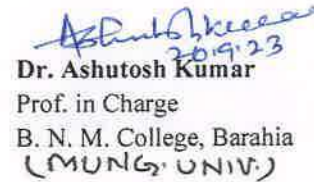 Ashutosh Kumar
20.9.23
Dr. Ashutosh Kumar
Prof. in Charge
B. N. M. College, Barahia
(MUNG. UNIV.)